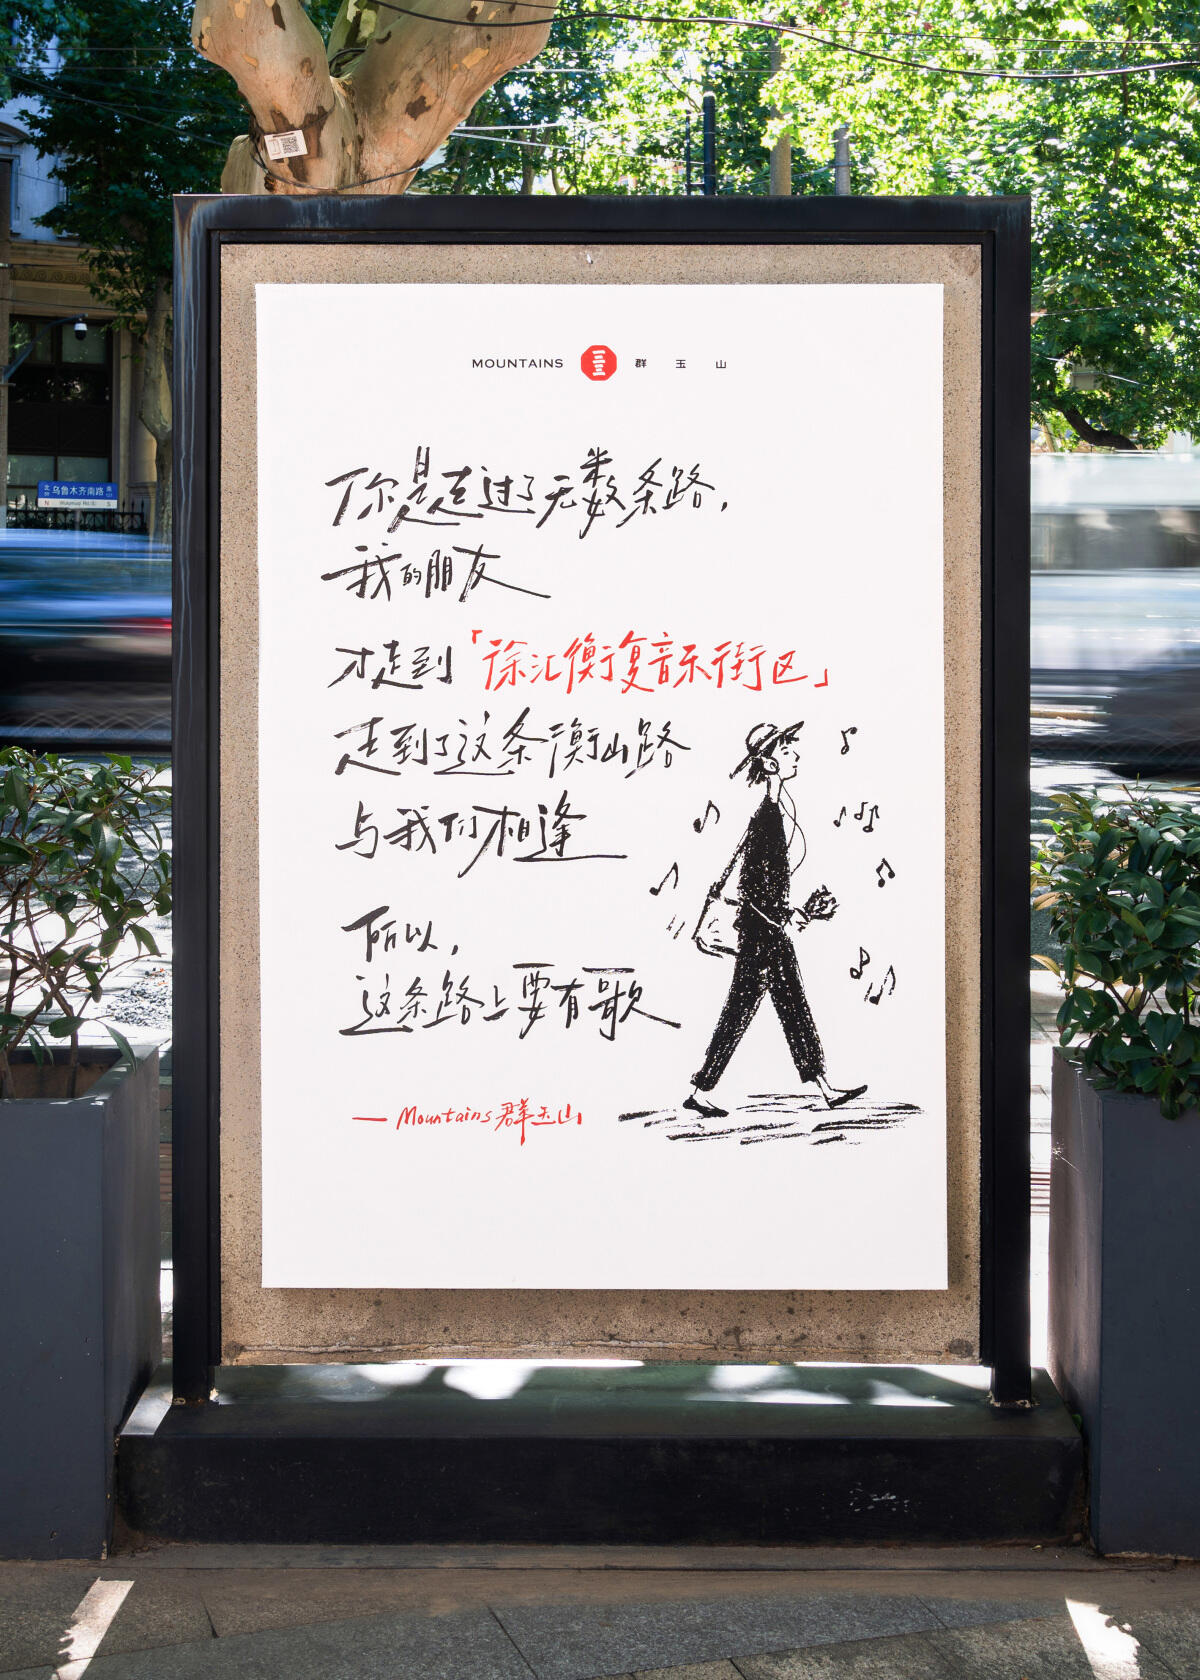 MOUNTAINS 群玉山
你是走过了无数条路，
我的朋友
才走到「徐汇衡复音乐街区」
走到了这条衡山路
与我们相逢
所以，
这条路上要有歌
— Mountains 群玉山
北 乌鲁木齐南路 南
N Wulumuqi Rd.(S.) S